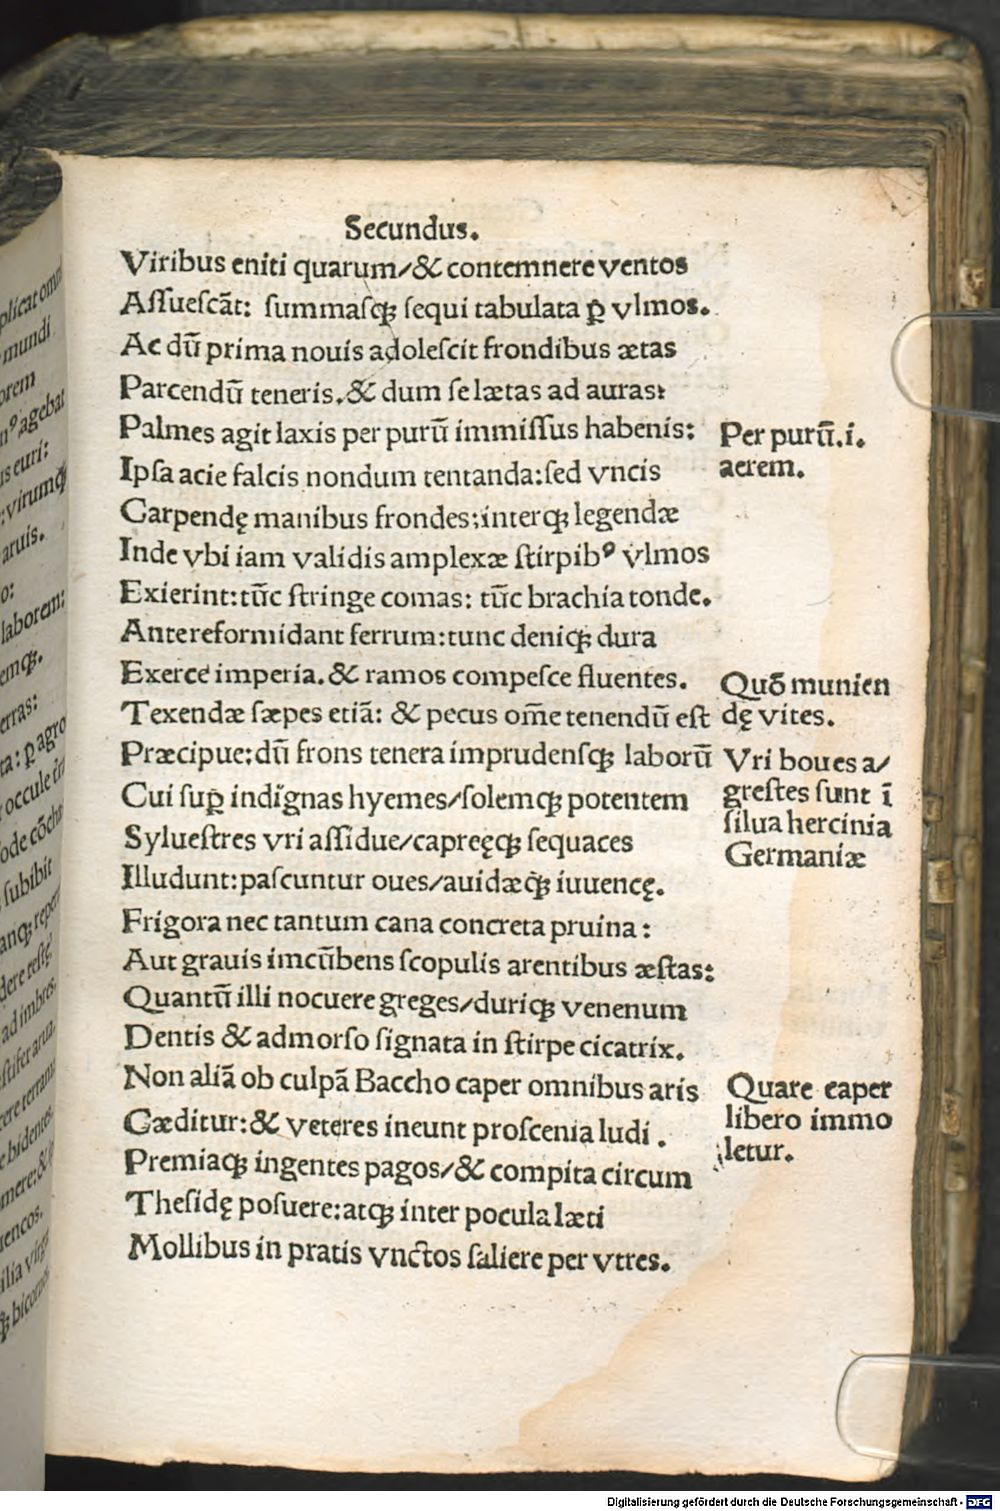 Secundus.
Viribus eniti quarum/& contemnere ventos
Aſſueſcāt: ſummaſq; ſequi tabulata ꝑ vlmos.
Ac dū prima nouis adoleſcit frondibus ætas
Parcendū teneris. & dum ſe lætas ad auras:
Palmes agit laxis per purū immiſſus habenis:
Ipſa acie falcis nondum tentanda: ſed vncis
Carpendę manibus frondes: interq; legendæ
Inde vbi iam validis amplexæ ſtirpibꝰ vlmos
Exierint: tūc ſtringe comas: tūc brachia tonde.
Ante reformidant ferrum: tunc deniq; dura
Exerce imperia. & ramos compeſce fluentes.
Texendæ ſæpes etiā: & pecus om̄e tenendū eſt
Præcipue: dū frons tenera imprudenſq; laborū
Cui ſuꝑ indignas hyemes/ſolemq; potentem
Sylueſtres vri aſſidue/capreęq; ſequaces
Illudunt: paſcuntur oues/auidæq; iuuencę.
Frigora nec tantum cana concreta pruina:
Aut grauis incūbens ſcopulis arentibus æſtas:
Quantū illi nocuere greges/duriq; venenum
Dentis & admorſo ſignata in ſtirpe cicatrix.
Non aliā ob culpā Baccho caper omnibus aris
Cæditur: & veteres ineunt proſcenia ludi.
Premiaq; ingentes pagos/& compita circum
Theſidę poſuere: atq; inter pocula læti
Mollibus in pratis vnctos ſaliere per vtres.
Per purū.i.
aerem.
Quō munien
dę vites.
Vri boues a/
greſtes ſunt ī
ſilua hercinia
Germaniæ
Quare caper
libero immo
letur.
plicat omni
mundi
orem
nꝰ agebat
us euri:
: virumq;
aruis.
o:
laborem:
emq;.
erras:
ta: ꝑ agro
occule
ode
ſubibit
anq; reper
dere teſtę
ad imbres
ſtifer arua.
cere terram
bidentes
mere: &
uencos.
ilia virgę
q; bicornes
Digitalisierung gefördert durch die Deutsche Forschungsgemeinschaft - DFG